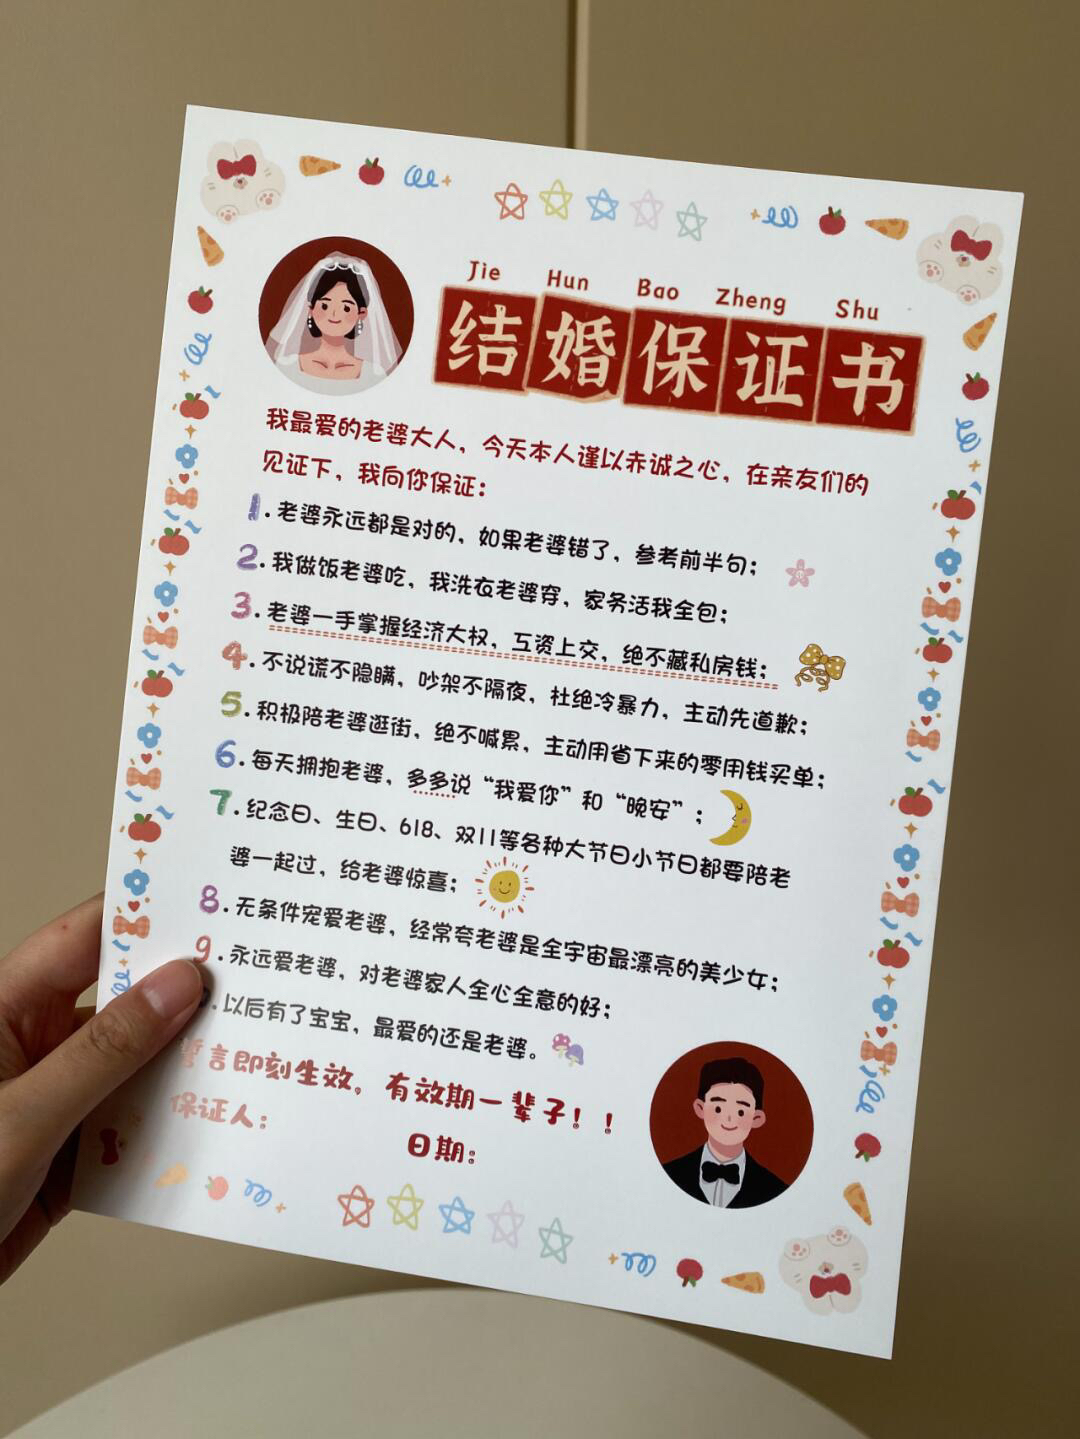 Jie Hun Bao Zheng Shu
结婚保证书
我最爱的老婆大人，今天本人谨以赤诚之心，在亲友们的
见证下，我向你保证：
1.老婆永远都是对的，如果老婆错了，参考前半句；
2.我做饭老婆吃，我洗衣老婆穿，家务活我全包；
3.老婆一手掌握经济大权，互资上交，绝不藏私房钱；
4.不说谎不隐瞒，吵架不隔夜，杜绝冷暴力，主动先道歉；
5.积极陪老婆逛街，绝不喊累，主动用省下来的零用钱买单；
6.每天拥抱老婆，多多说“我爱你”和“晚安”；
7.纪念日、生日、618、双11等各种大节日小节日都要陪老
婆一起过，给老婆惊喜；
8.无条件宠爱老婆，经常夸老婆是全宇宙最漂亮的美少女；
9.永远爱老婆，对老婆家人全心全意的好；
.以后有了宝宝，最爱的还是老婆。
誓言即刻生效，有效期一辈子！！
保证人：
日期：